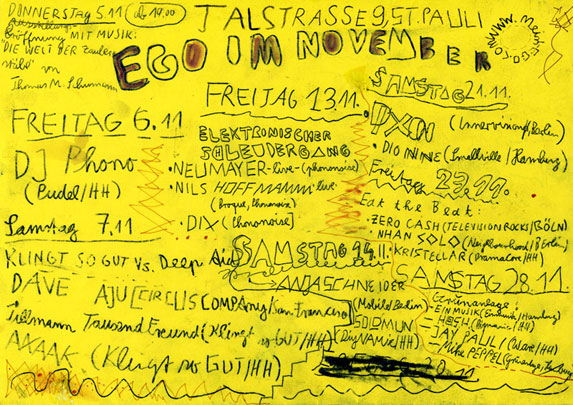 DONNERSTAG 5.11 ab 19.00
Ausstellungs-
eröffnung MIT MUSIK:
"DIE WELT DER Zauber
von
Thomas M.
TALSTRASSE 9, ST. PAULI
EGO IM NOVEMBER
WWW.MEINEGO.COM
FREITAG 6.11
DJ Phono
(Pudel/HH)
Samstag 7.11
KLINGT SO GUT vs. Deep
DAVE AJU (CIRCUS COMPAny/San Francisco
Tillmann Tausendfreund (Klingt so GUT/HH)
(Klingt so GUT/HH)
FREITAG 13.11.
ELEKTRONISCHER
SCHLEUDERGANG
• NEUMAYER -live- (phononoize)
• NILS HOFFMANN live
phononoize)
• DIX (Phononoize)
SAMSTAG 14.11
ANJA SCHNEIDER
(Mobile/Berlin)
SOLOMUN
(DiyNAMic/HH)
SAMSTAG 21.11.
DIXON (Innervisions/Berlin)
• DIO NINE (Smallville/Hamburg)
Freitag
Eat the Beat:
• ZERO CASH (TELEVISION ROCKS/KÖLN)
• NHAN SOLO (Neighbourhood/Berlin)
• KRISTELLAR (Dramacore/HH)
SAMSTAG 28.11.
Grünanlage:
– EINMUSIK (Einmusik/Hamburg)
– HOSH (Diynamic/HH)
– JAY PAULI
– Mike PEPPEL (Grünanlage/Hamburg